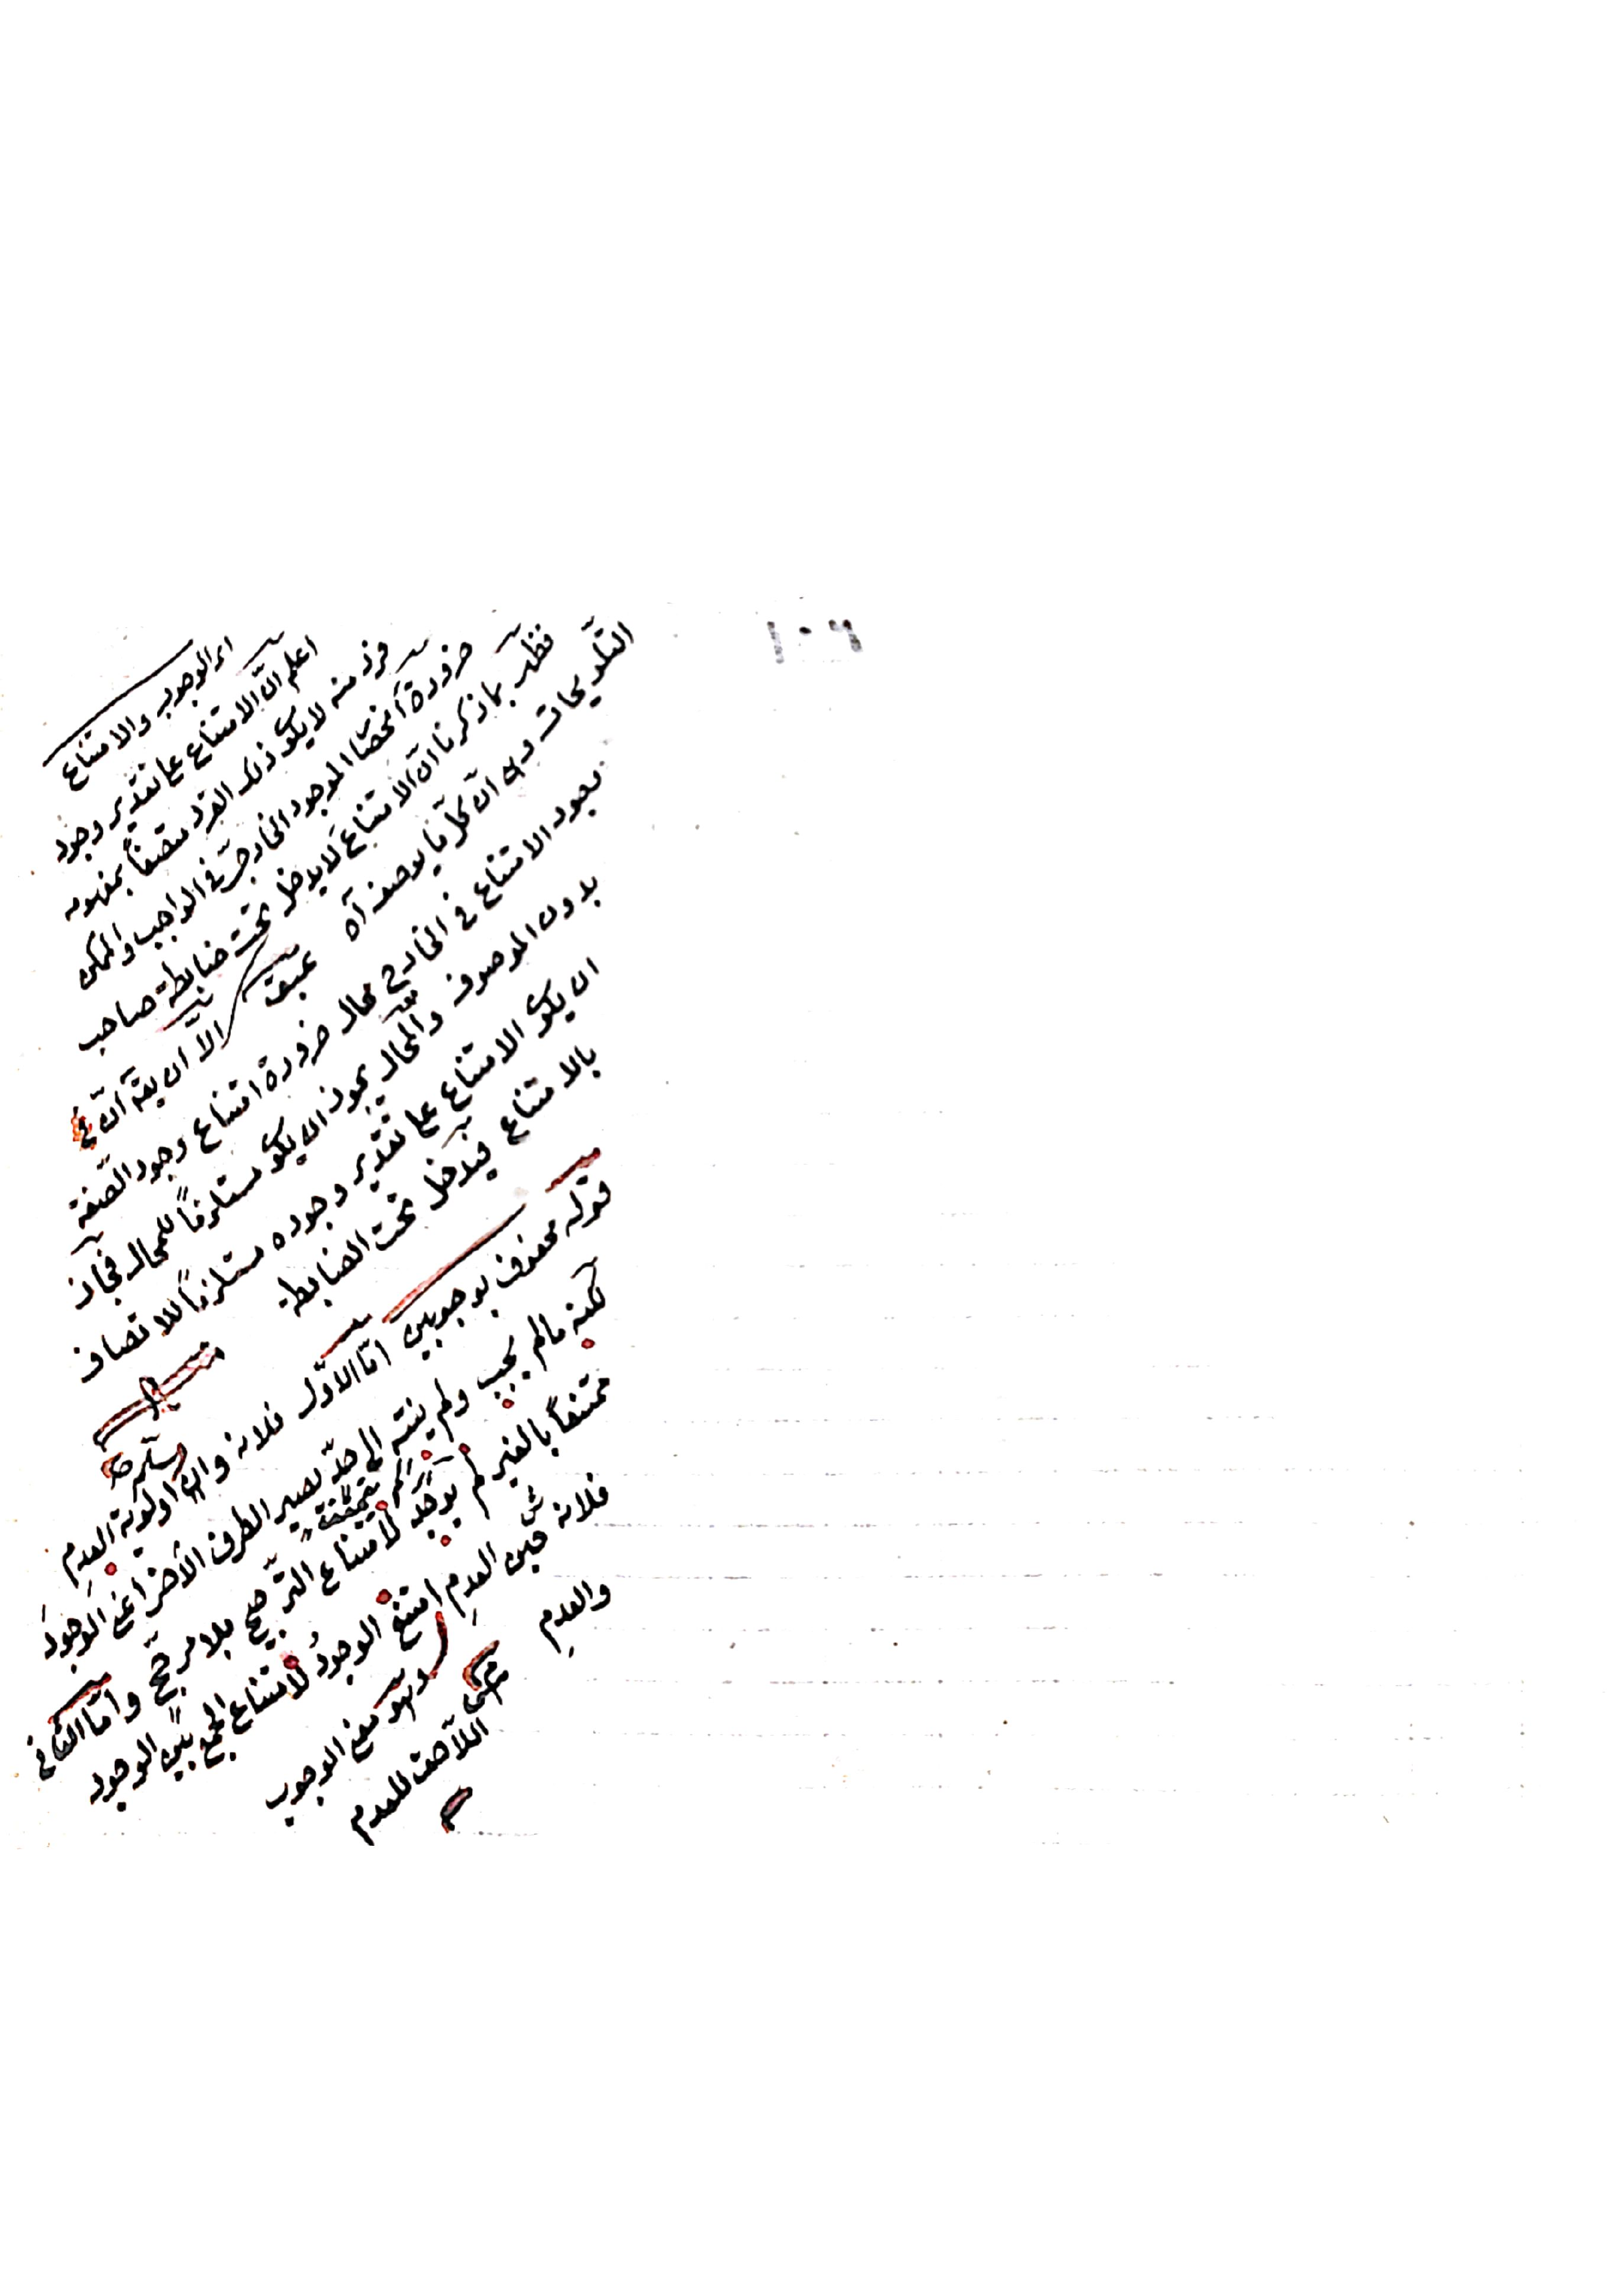 ١٠٦
اى الوجوب والامتناع
اعلم ان الامتناع على تقدير وجود
فرد منه لا يكون ذلك الفرد متصفاً بمفهومه
ضرورة الموجود الخارجى فى الواجب والممكن
فظهر بما ذكرنا ان الامتناع لا يدخل تحت ضابطة صاحب
التلويحات وهى ان كل ما يوصف آه
الا ان يقال ان
وجود الامتناع فى الخارج محال ضرورة امتناع وجود الصفة
بدون الموصوف والمحال يجوز ان يكون مستلزماً للمحال فجاز
ان يكون الامتناع على تقدير وجوده مستلزماً للاتصاف
بالامتناع فيدخل تحت الضابطة
قوله محفوف بوجوبين اما الاول فلانه وان
لكنه ما لم يجب ولم ينته الى حد يصير الطرف الآخر اعنى الوجود
ممتنعاً بالغير لم يوجد لامتناع الترجيح بلا مرجح واما الثانى
فلانه حين العدم امتنع الوجود لامتناع الجمع بين الوجود
والعدم
وهو معنى الوجوب
اللاحق للعدم